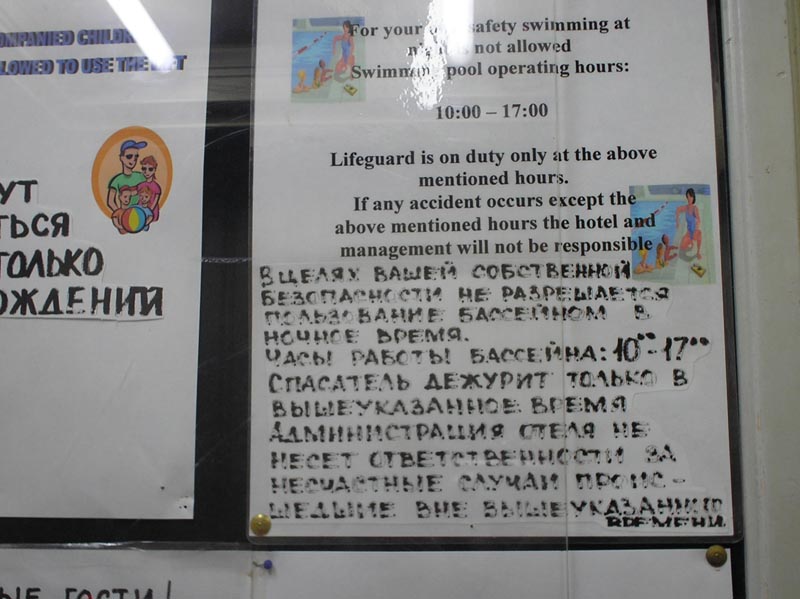 ONPANIED CHILDR
LLOWED TO USE THE
УТ
ТЬСЯ
ТОЛЬКО
ОЖДЕНИИ
For your safety swimming at
not allowed
pool operating hours:
10:00 – 17:00
Lifeguard is on duty only at the above
mentioned hours.
If any accident occurs except the
above mentioned hours the hotel and
management will not be responsible
В ЦЕЛЯХ ВАШЕЙ СОБСТВЕННОЙ
БЕЗОПАСНОСТИ НЕ РАЗРЕШАЕТСЯ
ПОЛЬЗОВАНИЕ БАССЕЙНОМ В
НОЧНОЕ ВРЕМЯ.
ЧАСЫ РАБОТЫ БАССЕЙНА: 10⁰⁰-17⁰⁰
СПАСАТЕЛЬ ДЕЖУРИТ ТОЛЬКО В
ВЫШЕУКАЗАННОЕ ВРЕМЯ
АДМИНИСТРАЦИЯ ОТЕЛЯ НЕ
НЕСЕТ ОТВЕТСТВЕННОСТИ ЗА
НЕСЧАСТНЫЕ СЛУЧАИ ПРОИС-
ШЕДЫИЕ ВНЕ ВЫШЕУКАЗАННОГО
ВРЕМЕНИ.
ЫЕ ГОСТИ!